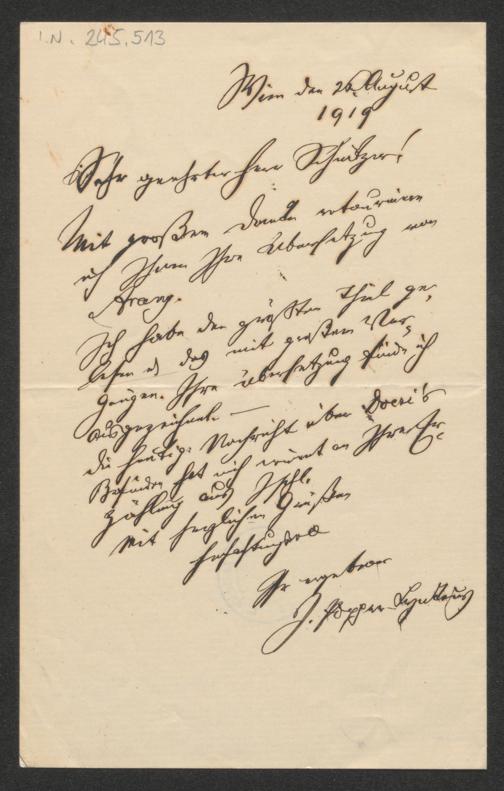 I.N. 245.513
Wien den 26 August
1919
Sehr geehrter Herr Schnitzer!
Mit großem Danke retournire
ich Ihnen Ihre Übersetzung von
Arany.
Ich habe den größten Theil ge-
lesen und das mit großem Ver-
gnügen. Ihre Übersetzung finde ich
ausgezeichnet. —
Die heutige Nachricht über Doczi's
Befinden hat mich erinnert an Ihre Er-
zählung aus Ischl.
Mit herzlichen Grüßen
hochachtungsvoll
Ihr ergebener
J. Popper-Lynkeus